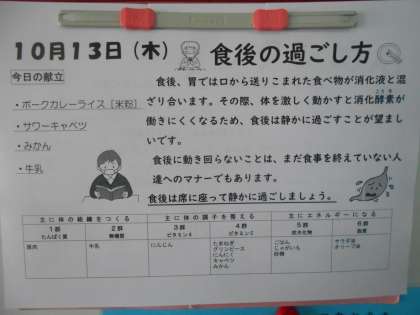 10月13日（木）
食後の過ごし方
今日の献立
・ポークカレーライス［米粉］
・サワーキャベツ
・みかん
・牛乳
食後、胃では口から送りこまれた食べ物が消化液と混
ざり合います。その際、体を激しく動かすと消化酵素が
働きにくくなるため、食後は静かに過ごすことが望まし
いです。
食後に動き回らないことは、まだ食事を終えていない人
達へのマナーでもあります。
食後は席に座って静かに過ごしましょう。
主に体の組織をつくる 主に体の調子を整える 主にエネルギーになる
1群 2群 3群 4群 5群 6群
たんぱく質 無機質 ビタミンA ビタミンC 炭水化物 脂質
豚肉 牛乳 にんじん たまねぎ ごはん サラダ油
グリンピース じゃがいも オリーブ油
にんにく 砂糖
キャベツ
みかん